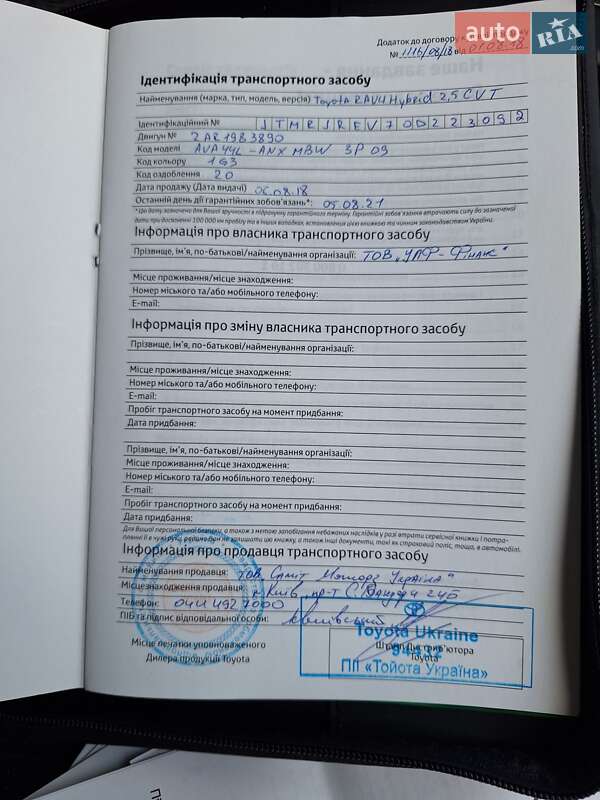 auto RIA .com
Додаток до договору
№ 1116/08/18 від 01.08.18
Ідентифікація транспортного засобу
Найменування (марка, тип, модель, версія) Toyota RAV4 Hybrid 2,5 CVT
Ідентифікаційний № JTMRJREV70D223092
Двигун № 2AR1983890
Код моделі AVA44L-ANXMBW 3P 09
Код кольору 1G3
Код оздоблення 20
Дата продажу (Дата видачі) 06.08.18
Останній день дії гарантійних зобов'язань*: 05.08.21
* Цю дату зазначено для Вашої зручності в підрахунку гарантійного терміну. Гарантійні зобов'язання втрачають силу до зазначеної
дати при досягненні 100 000 км пробігу та в інших випадках, встановлених цією книжкою та чинним законодавством України.
Інформація про власника транспортного засобу
Прізвище, ім'я, по-батькові/найменування організації: ТОВ „УЛФ-Фінанс"
Місце проживання/місце знаходження:
Номер міського та/або мобільного телефону:
E-mail:
Інформація про зміну власника транспортного засобу
Прізвище, ім'я, по-батькові/найменування організації:
Місце проживання/місце знаходження:
Номер міського та/або мобільного телефону:
E-mail:
Пробіг транспортного засобу на момент придбання:
Дата придбання:
Прізвище, ім'я, по-батькові/найменування організації:
Місце проживання/місце знаходження:
Номер міського та/або мобільного телефону:
E-mail:
Пробіг транспортного засобу на момент придбання:
Дата придбання:
Для Вашої персональної безпеки, а також з метою запобігання небажаних наслідків у разі втрати сервісної книжки і потра-
плянні її в чужі руки, радимо Вам не залишати цю книжку, а також інші документи, такі як страховий поліс, тощо, в автомобілі.
Інформація про продавця транспортного засобу
Найменування продавця: ТОВ „Саміт Моторз Україна"
Місцезнаходження продавця: м. Київ, пр-т С. Бандери 24Б
Телефон: 044 492 7000
ПІБ та підпис відповідальної особи:
Місце печатки уповноваженого
Дилера продукції Toyota
Toyota Ukraine
Штамп Дистриб'ютора
Toyota
ПІІ «Тойота Україна»